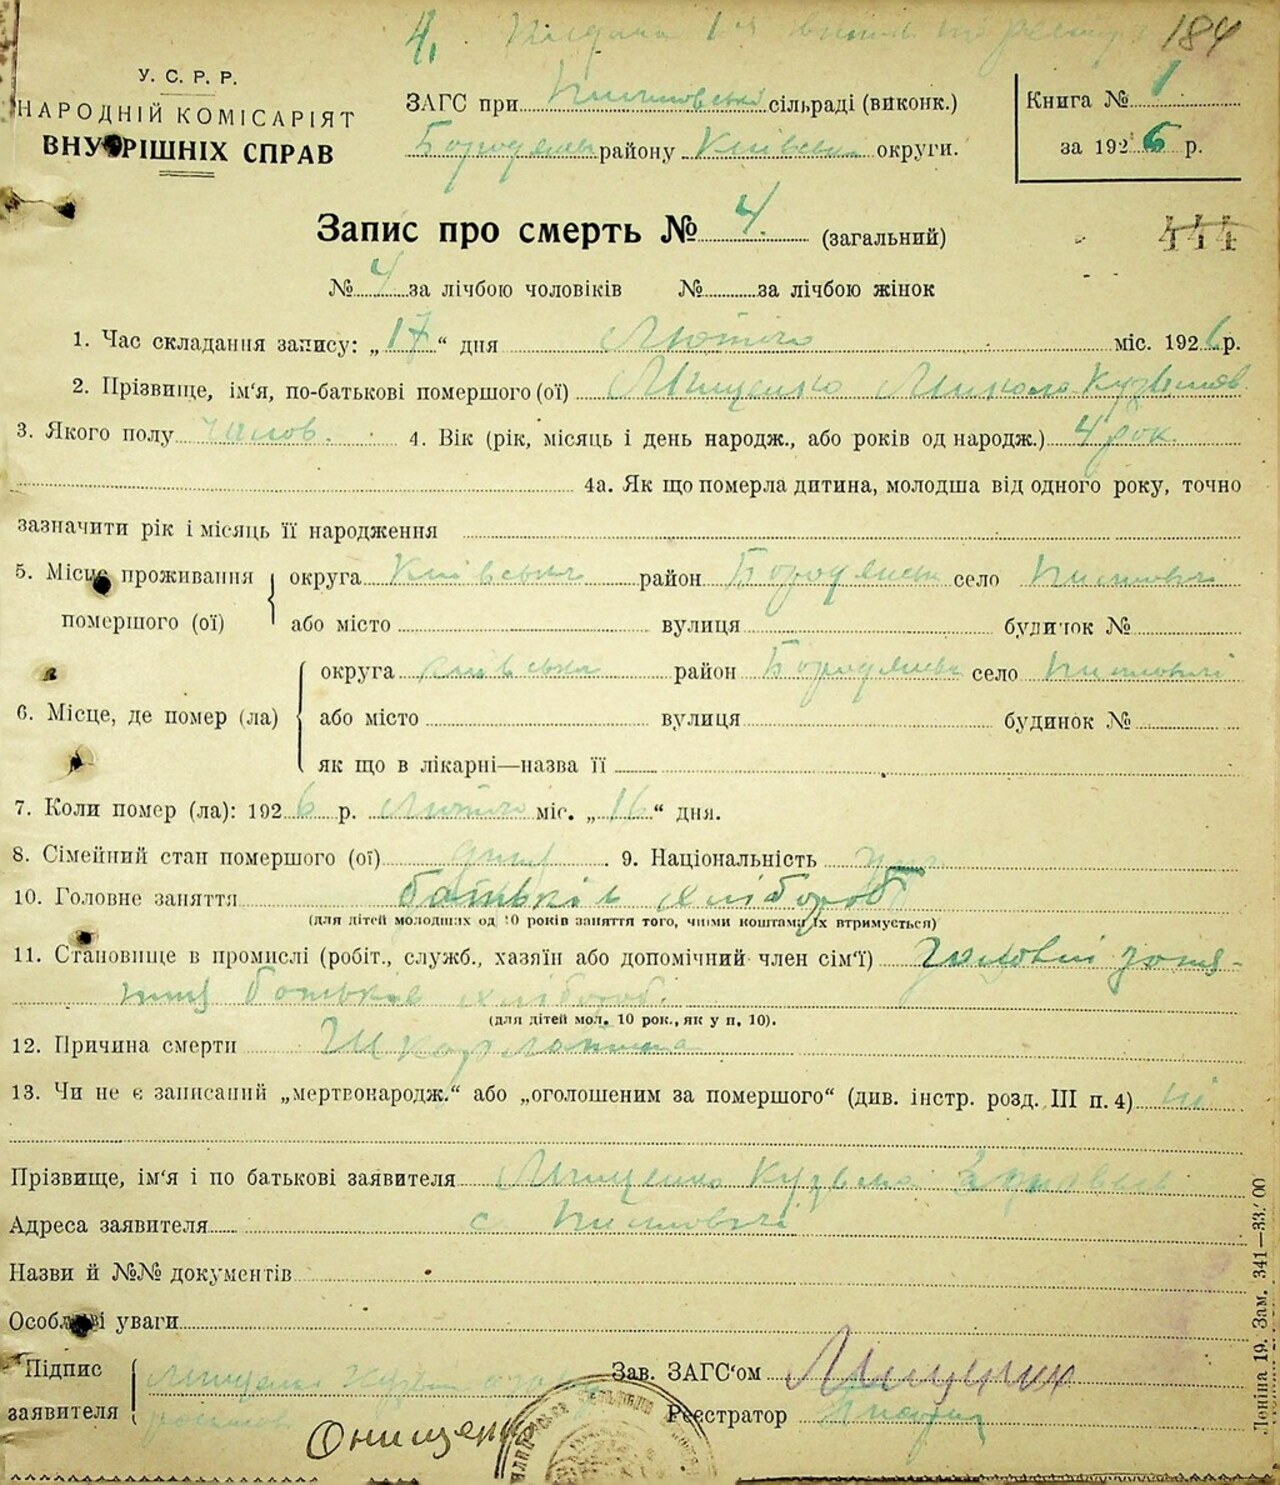 4. 184
У. С. Р. Р.
НАРОДНІЙ КОМІСАРІЯТ
ВНУТРІШНІХ СПРАВ
ЗАГС при сільраді (виконк.)
Бородянськ району Київськ округи.
Книга № 1
за 1926 р.
Запис про смерть № 4. (загальний)
444
№ 4 за лічбою чоловіків № за лічбою жінок
1. Час складання запису: „17“ дня Лютого міс. 1926 р.
2. Прізвище, ім‘я, по-батькові помершого (ої) Мищенко Микола Кузьмов
3. Якого полу чолов. 4. Вік (рік, місяць і день народж., або років од народж.) 4 рок.
4а. Як що померла дитина, молодша від одного року, точно
зазначити рік і місяць її народження
5. Місце проживання помершого (ої) округа Київська район Бородянськ село
або місто вулиця будинок №
6. Місце, де помер (ла) округа Київська район Бородянськ село
або місто вулиця будинок №
як що в лікарні—назва її
7. Коли помер (ла): 1926 р. Лютого міс. „16“ дня.
8. Сімейний стан помершого (ої) 9. Національність укр
10. Головне заняття батьків хлібороб
(для дітей молодших од 10 років заняття того, чиїми коштами їх втримується)
11. Становище в промислі (робіт., служб., хазяїн або допомічний член сім‘ї) Головні заня-
ття батьків хлібороб.
(для дітей мол. 10 рок., як у п. 10).
12. Причина смерти Шкарлатина
13. Чи не є записаний „мертвонародж.“ або „оголошеним за помершого“ (див. інстр. розд. III п. 4) ні
Прізвище, ім‘я і по батькові заявителя Мищенко Кузьма
Адреса заявителя с.
Назви й №№ документів
Особливі уваги
Підпис заявителя Мищенко
Зав. ЗАГС‘ом
Реєстратор
Онищенко
Леніна 19. Зам. 341—33.000